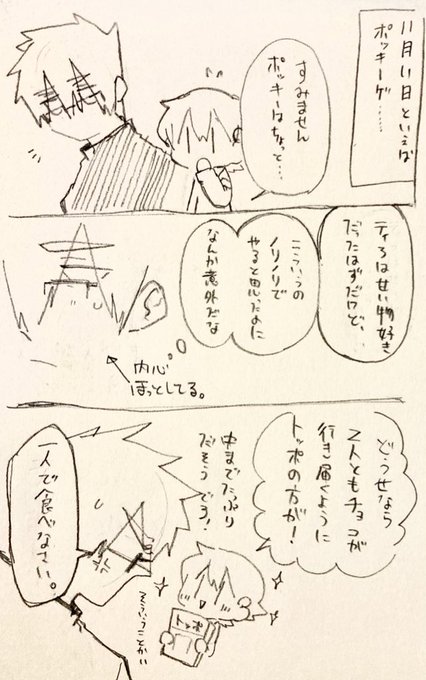 11月11日といえば
ポッキーゲ……
すみません
ポッキーはちょっと…
ティろは甘い物好き
だったはずだけど、
こういうの
ノリノリで
やると思ったのに
なんか意外だな
内心
ほっとしてる。
どうせなら
2人ともチョコが
行き届くように
トッポの方が!
中までたっぷり
だそうでろ!
トッポ
一人で食べなさい。
そういうことかい